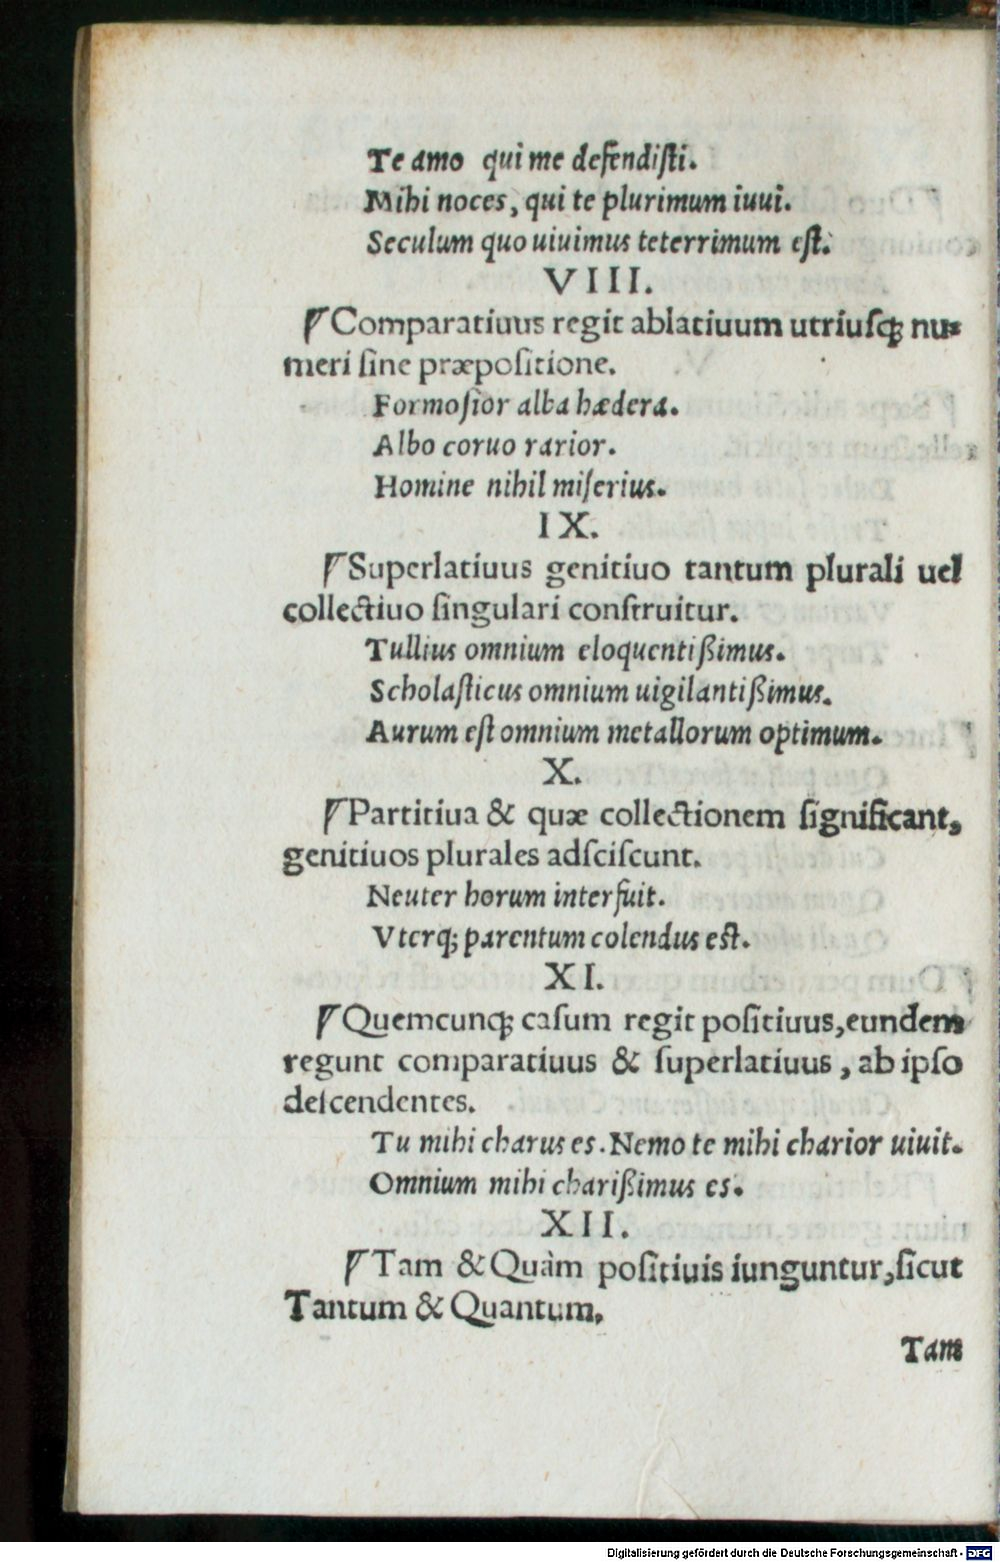 Te amo qui me defendiſti.
Mihi noces, qui te plurimum iuui.
Seculum quo uiuimus teterrimum eſt.
VIII.
Comparatiuus regit ablatiuum utriuſq; nu-
meri ſine præpoſitione.
Formoſior alba hædera.
Albo coruo rarior.
Homine nihil miſerius.
IX.
Superlatiuus genitiuo tantum plurali uel
collectiuo ſingulari conſtruitur.
Tullius omnium eloquentißimus.
Scholaſticus omnium uigilantißimus.
Aurum eſt omnium metallorum optimum.
X.
Partitiua & quæ collectionem ſignificant,
genitiuos plurales adſciſcunt.
Neuter horum interfuit.
Vterq; parentum colendus eſt.
XI.
Quemcunq; caſum regit poſitiuus, eundem
regunt comparatiuus & ſuperlatiuus, ab ipſo
deſcendentes.
Tu mihi charus es. Nemo te mihi charior uiuit.
Omnium mihi charißimus es.
XII.
Tam & Quàm poſitiuis iunguntur, ſicut
Tantum & Quantum,
Tam
Digitalisierung gefördert durch die Deutsche Forschungsgemeinschaft - DFG